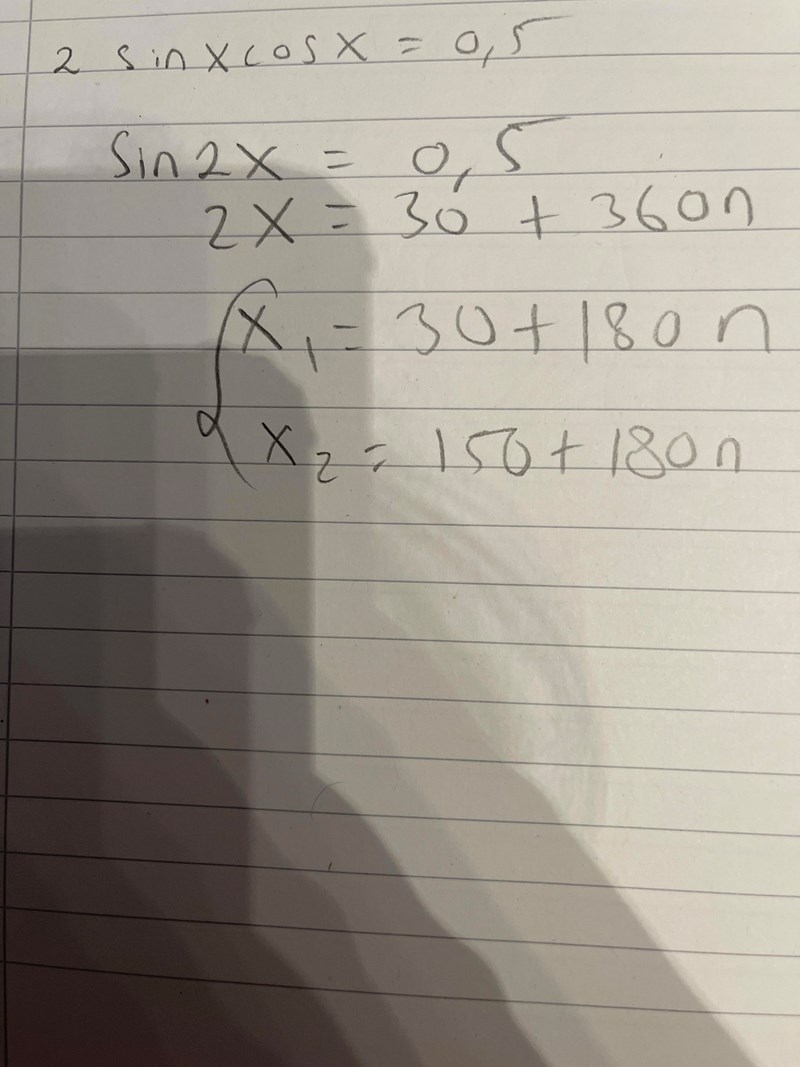 2 sinxcosx = 0,5
sin2x = 0,5
2x = 30 + 360n
x₁ = 30+180n
x₂ = 150+180n